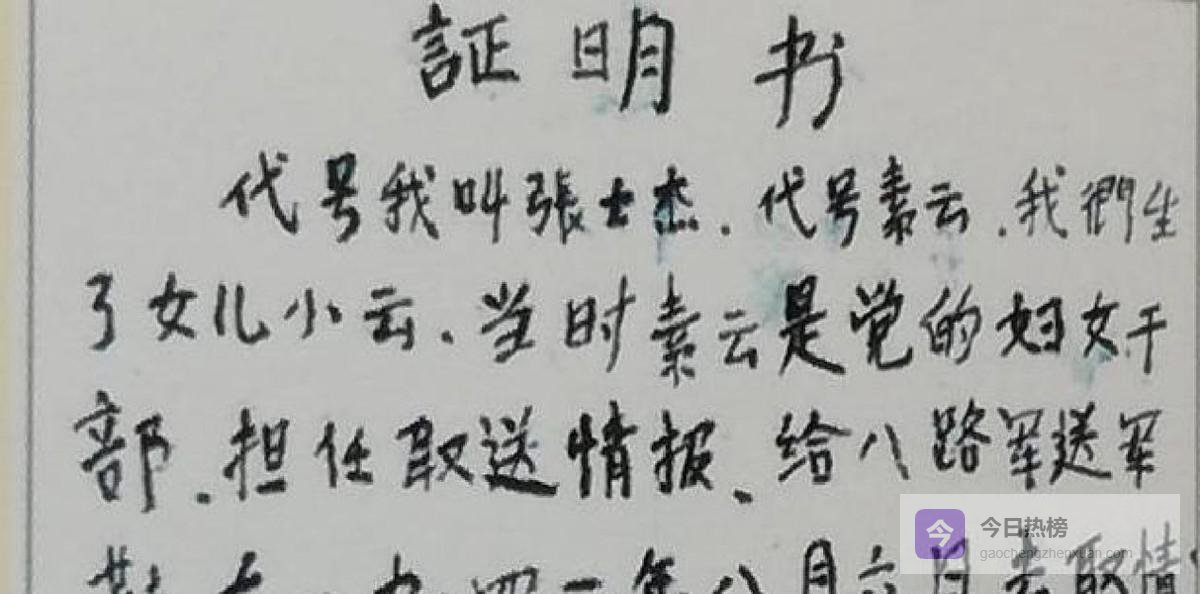 証明书
代号我叫張士杰.代号素云.我們生
了女儿小云.当时素云是党的妇女干
部.担任取送情报、给八路军送军
九四一年八月六日去取情
今 今日热榜
gaochengzhenxuan.com